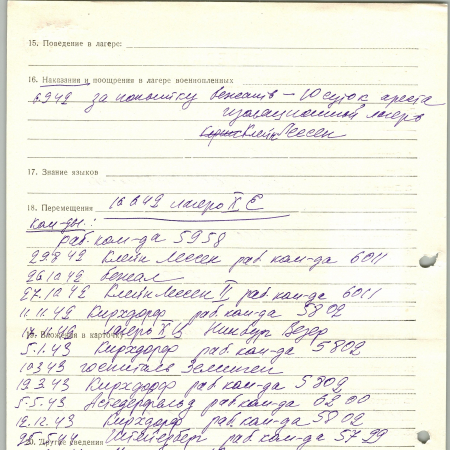 15. Поведение в лагере:
16. Наказания и поощрения в лагере военнопленных
6942 за попытку бежать – 10 суток ареста
изоляционной лагерь
Клейн Лессен
17. Знание языков
18. Перемещения 16 6 42 лагерь X C
Ком-ды:
раб. ком-да 5958
29 9 42 Клейн Лессен раб. ком-да 6011
26 10 42 бежал
27.10 42 Клейн Лессен II раб. ком-да 6011
11.11 42 Кирхдорф раб. ком-да 5802
лагерь X C Нинбург Везер
19. Вложения в карточку
5.1.43 Кирхдорф раб. ком-да 5802
10 3 43 госпиталь
19.3 43 Кирхдорф раб. ком-да 5802
5.5.43 раб. ком-да 6200
12.12.43 Кирхдорф раб. ком-да 5802
20. Другие сведения
Штейерберг раб. ком-да 5729